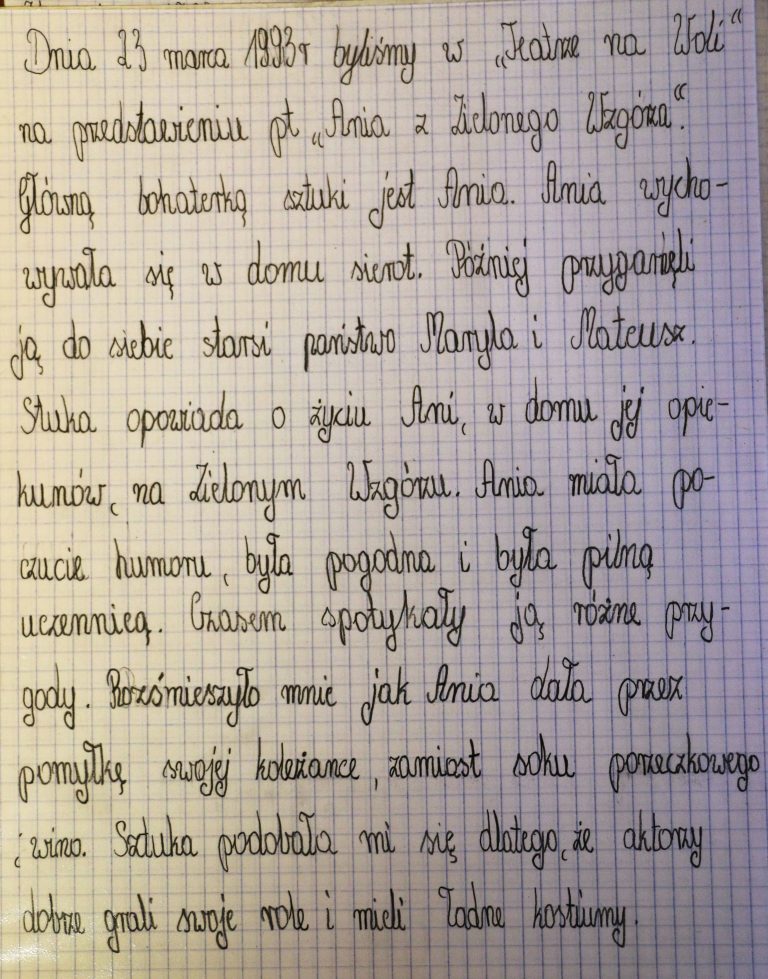 Dnia 23 marca 1993r byliśmy w „Teatrze na Woli”
na przedstawieniu pt „Ania z Zielonego Wzgórza”.
Główną bohaterką sztuki jest Ania. Ania wycho-
wywała się w domu sierot. Później przygarnęli
ją do siebie starsi państwo Maryla i Mateusz.
Stuka opowiada o życiu Ani, w domu jej opie-
kunów, na Zielonym Wzgórzu. Ania miała po-
czucie humoru, była pogodna i była pilną
uczennicą. Czasem spotykały ją różne przy-
gody. Rozśmieszyło mnie jak Ania dała przez
pomyłkę swojej koleżance, zamiast soku porzeczkowego
, wino. Sztuka podobała mi się dlatego, że aktorzy
dobrze grali swoje role i mieli ładne kostiumy.